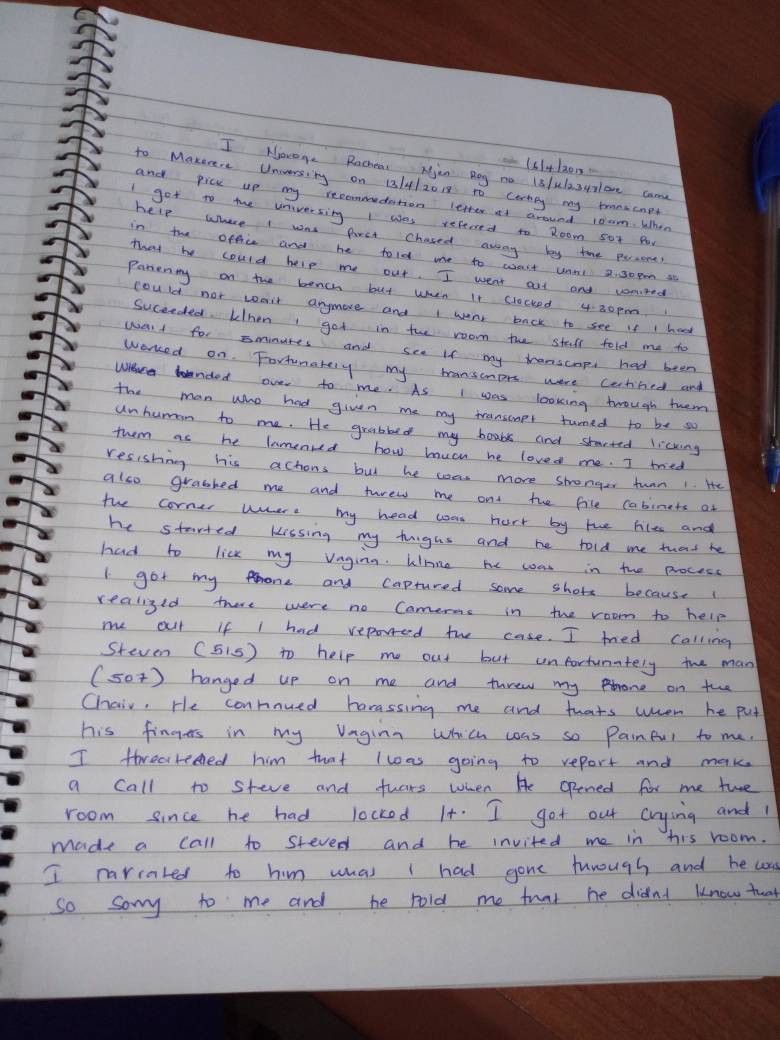 13/4/2018
I Njoroge Racheal Njeri Reg no 13/U/23431/eve came
to Makerere University on 13/4/2018 to certify my transcript
and pick up my recommedation letter at around 10am. When
I got to the university I was referred to Room 507 for
help where I was first chased away by the personel
in the office and he told me to wait until 2.30pm so
that he could help me out. I went out and waited
Patiently on the bench but when it clocked 4:30pm I
could not wait anymore and I went back to see if I had
suceeded. When I got in the room the staff told me to
wait for 5minutes and see if my transcript had been
worked on. Fortunately my transcripts were certified and
handed over to me. As I was looking through them
the man who had given me my transcript turned to be so
unhuman to me. He grabbed my boobs and started licking
them as he lamented how much he loved me. I tried
resisting his actions but he was more stronger than I. He
also grabbed me and threw me ont the file cabinets at
the corner where my head was hurt by the files and
he started kissing my thighs and he told me that he
had to lick my vagina. While he was in the process
I got my Phone and captured some shots because I
realized there were no cameras in the room to help
me out if I had reported the case. I tried calling
Steven (515) to help me out but unfortunately the man
(507) hanged up on me and threw my Phone on the
Chair. He continued harassing me and thats when he put
his fingers in my Vagina which was so Painful to me.
I threatened him that I was going to report and make
a call to Steve and thats when He opened for me the
room since he had locked It. I got out crying and I
made a call to Steven and he invited me in his room.
I narrated to him what I had gone through and he was
so sorry to me and he told me that he didnt know that